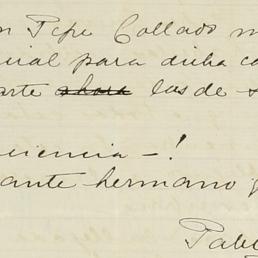 n Pepe Collado m
rial para dicha co
arte ahora las de s
ciencia —!
ante hermano y
Pabl